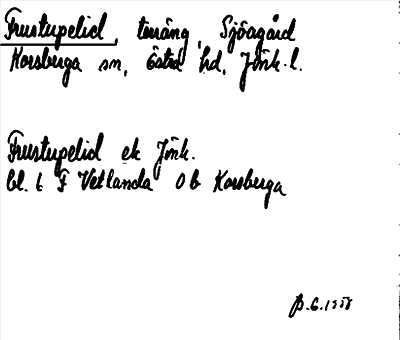 Frustupelid, terräng, Sjöagård
Korsberga sn, Östra hd, Jönk. l.
Frustupelid ek Jönk.
bl. 6 F Vetlanda Ob Korsberga
B.G. 1958